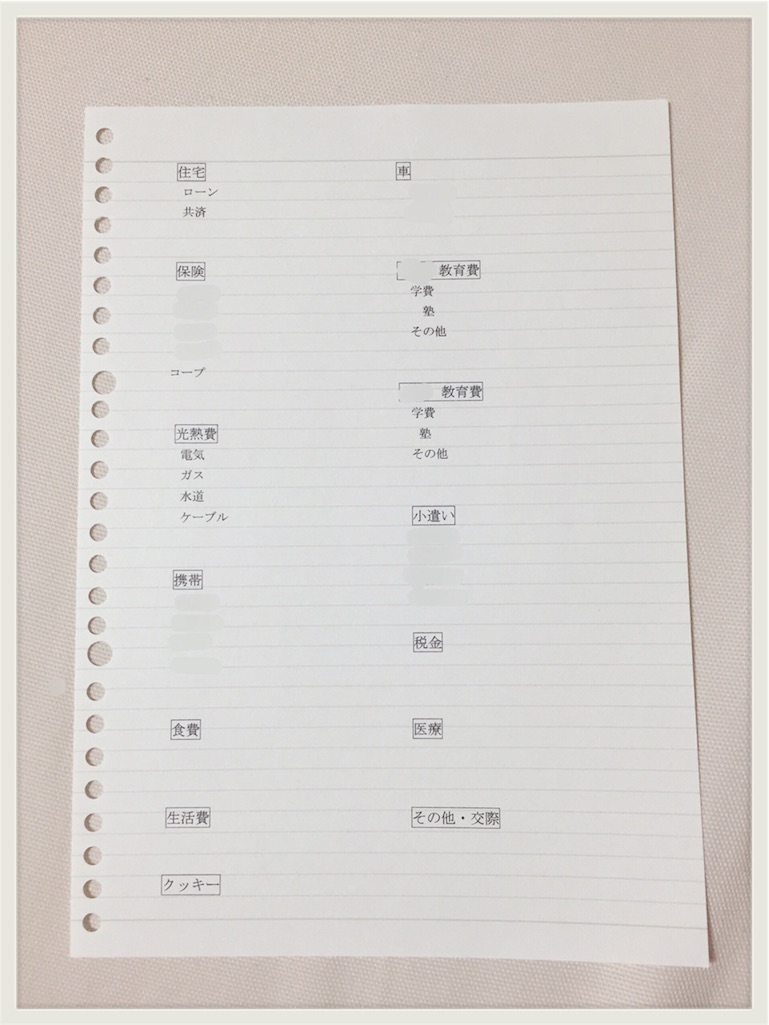 住宅
ローン
共済
保険
コープ
光熱費
電気
ガス
水道
ケーブル
携帯
食費
生活費
クッキー
車
教育費
学費
塾
その他
教育費
学費
塾
その他
小遣い
税金
医療
その他・交際